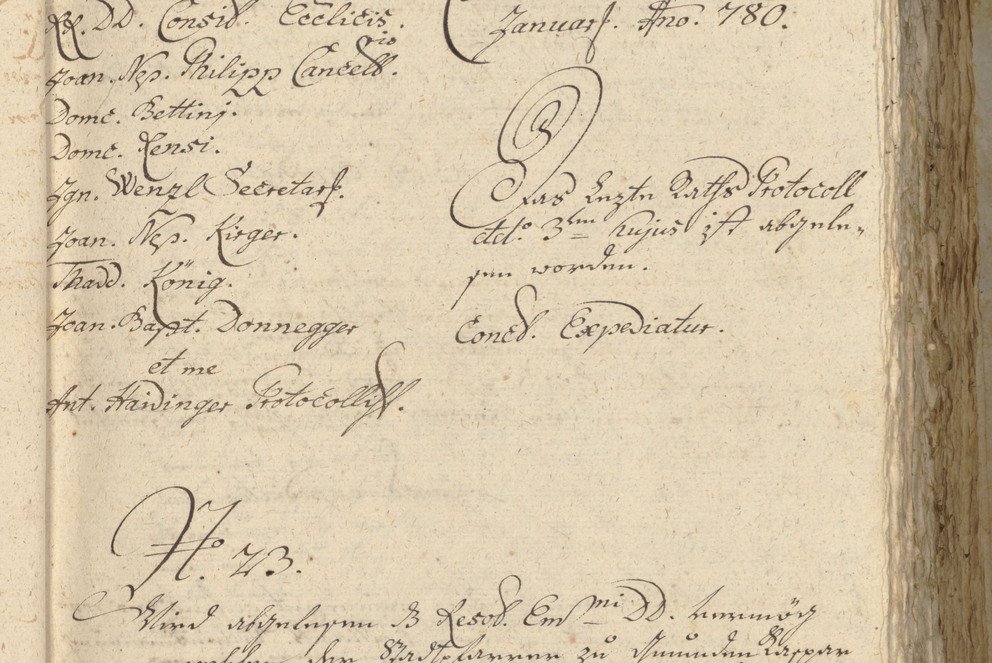 RR. DD. Consil. Ecclicis.
Joan. Nep. Philipp Cancell.rio
Dome. Bettinj.
Dome. Rensi.
Ign. Wenzl Secretarj.
Joan. Nep. Kirger.
Thadd. König.
Joan. Bapt. Donnegger
et me
Ant. Haidinger Protocollist.
Januarj. Ano. 780.
Das Lezte Raths Protocoll
ddto. 3tm hujus ist abgele-
sen worden.
Concl. Expediatur.
No. 23.
Wird abgelesen Resol. Emmi DD. vermög
welcher der Stadtpfarrer zu Gmunden Kaspar